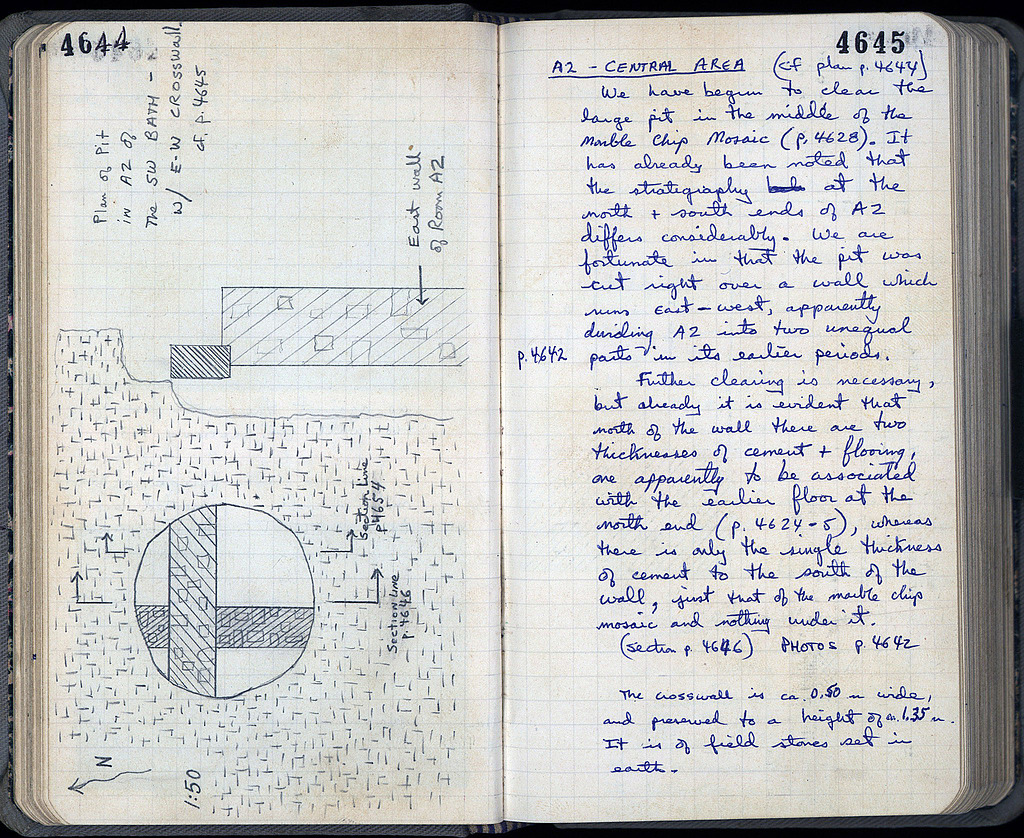 4644
Plan of Pit
in A2 of
The SW BATH -
w/ E-W CROSSWALL
cf. p. 4645
East Wall
of Room A2
Section Line
p. 4654
Section Line
p. 4646
N
1:50
4645
A2 - CENTRAL AREA (cf plan p. 4644)
We have begun to clear the
large pit in the middle of the
Marble Chip Mosaic (p. 4628). It
has already been noted that
the stratigraphy at the
north + south ends of A2
differs considerably. We are
fortunate in that the pit was
cut right over a wall which
runs East-west, apparently
dividing A2 into two unequal
p. 4642 parts in its earlier periods.
Further clearing is necessary,
but already it is evident that
north of the wall there are two
thicknesses of cement + flooring,
one apparently to be associated
with the earlier floor at the
north end (p. 4624-5), whereas
there is only the single thickness
of cement to the south of the
wall, just that of the marble chip
mosaic and nothing under it.
(Section p. 4646) PHOTOS p. 4642
The crosswall is ca. 0.50 m wide,
and preserved to a height of ca. 1.35 m.
It is of field stones set in
earth.